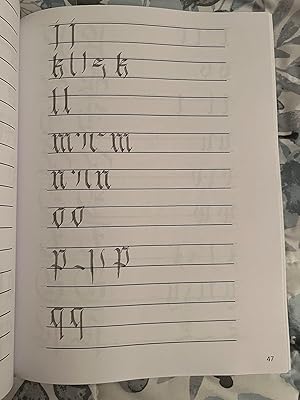 j j
k k
l l
m m
n n
o o
p p
q q
47